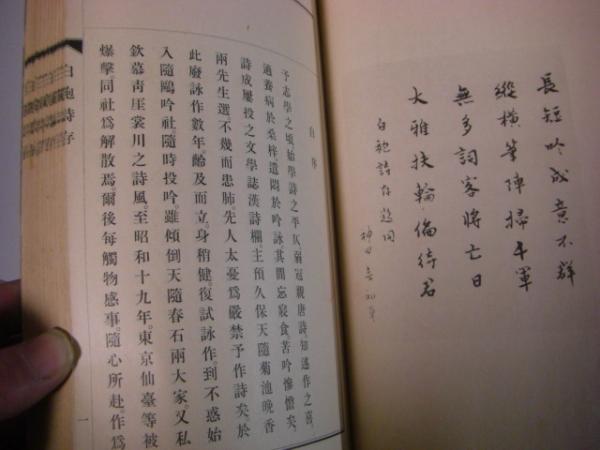 長短吟成意不群
縱橫筆陣掃千軍
無多詞客將亡日
大雅扶輪待君
白袍詩存題詞
神田
自序
予志學之頃始學詩之平仄。弱冠親唐詩、知述作之喜。
適養病於桑梓、遣悶於吟詠。其間忘寢食、苦吟慘憺矣。
詩成屢投之文學誌漢詩欄。主預久保天隨菊池晚香
兩先生選。不幾而患肺。先人太憂爲嚴禁予作詩矣。於
此廢詠作數年。齡及而立、身稍健。復試詠作。到不惑始
入隨鷗吟社。隨時投吟。雖傾倒天隨春石兩大家、又私
欽慕靑厓裳川之詩風。至昭和十九年。東京仙臺等被
爆擊。同社爲解散焉。爾後每觸物感事。隨心所赴。作爲
一
白袍詩存